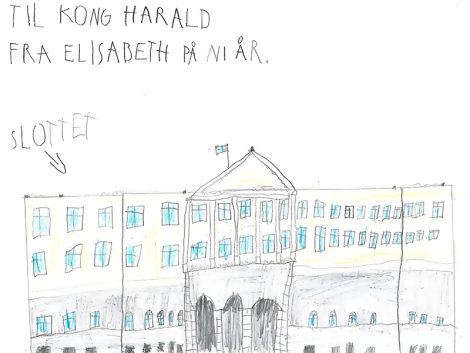 TIL KONG HARALD
FRA ELISABETH PÅ NI ÅR.
SLOTTET